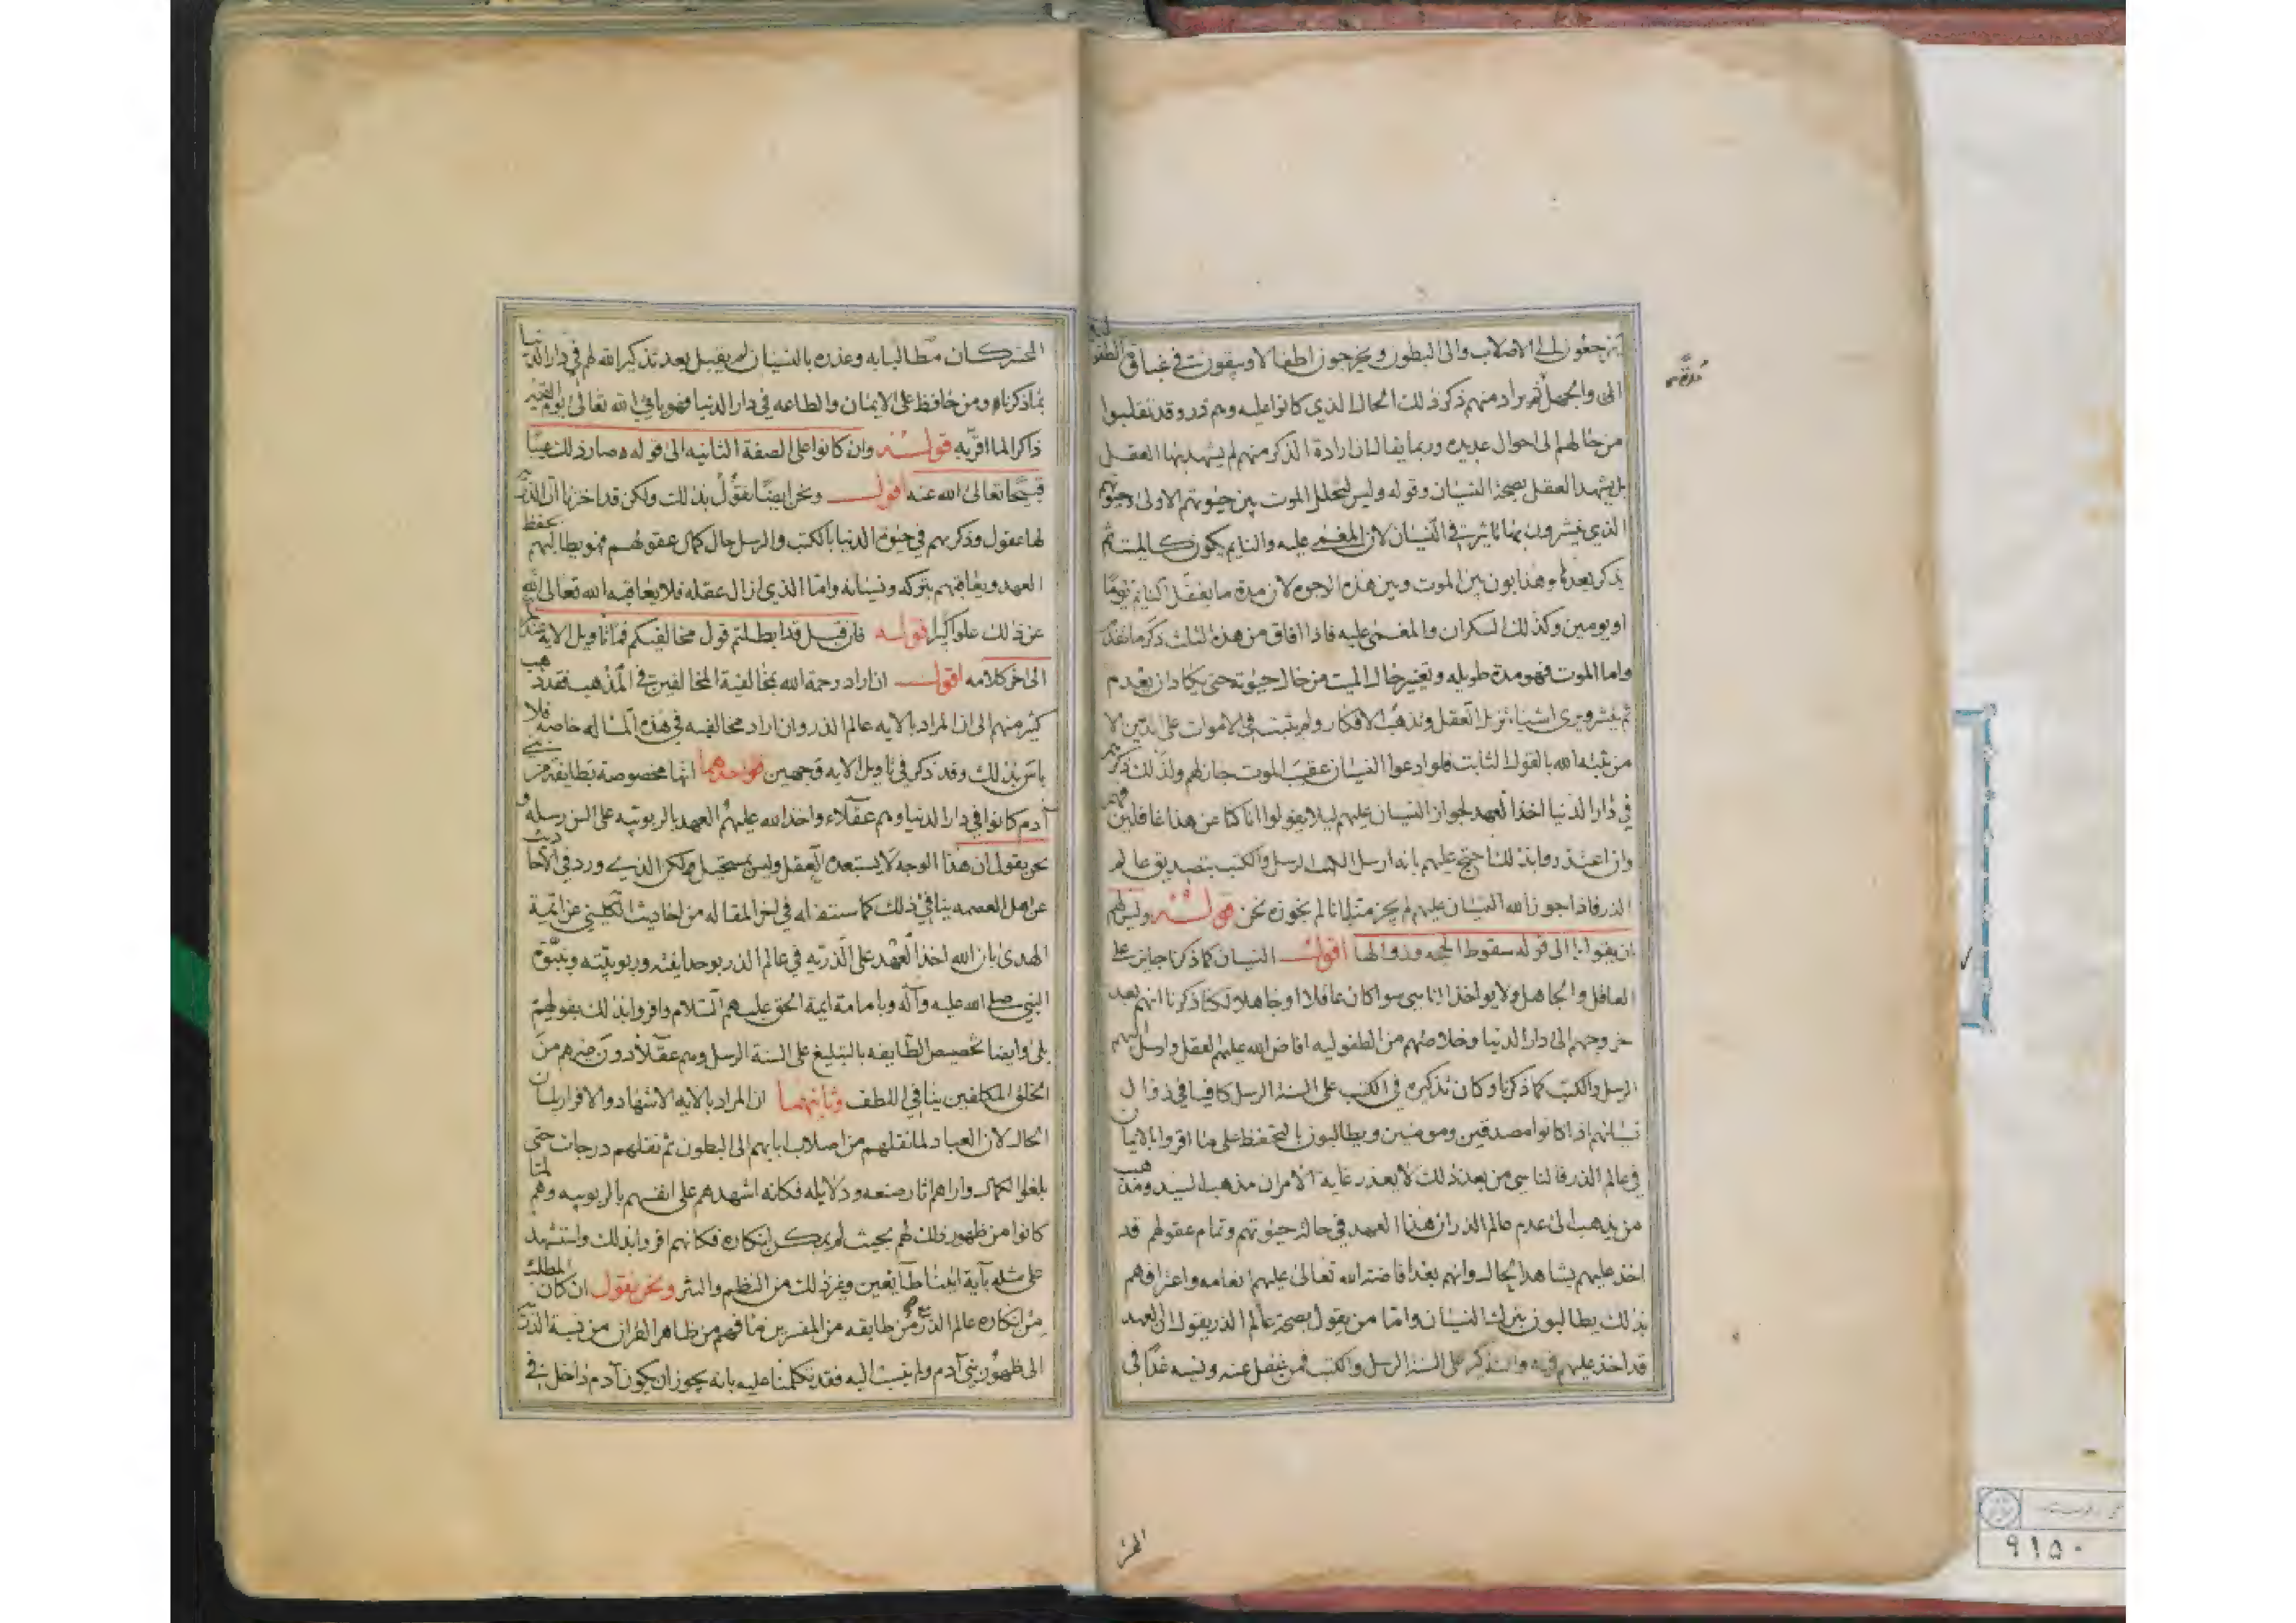 يرجعون الى الاصلاب والى البطون ويخرجون اطفالا ويبقون في غباق الطفولية
الى والجهل لم يراد منهم ذكر ذلك الحال الذي كانوا عليه وهم ذر وقد تقلبوا
من حالهم الى احوال عديده وربما يقال ان ارادة الذكر منهم لم يشهد بها العقل
بل يشهد العقل بصحة النسيان وقوله وليس لتخلل الموت بين حيوتهم الاولى وحيوتهم
الذي ينشرون بها تاثير في النسيان لان المغمى عليه والنايم يكون كالميت ثم
يذكر بعدها وهذا بون بين الموت وبين هذه الوجوه لان مدة ما يغفل النايم يوما
او يومين وكذلك السكران والمغمى عليه فاذا افاق من هذه الثلث ذكر ما تقدم
واما الموت فهو مدة طويله وتغير حال الميت من حال حيوته حتى يكاد ان يعدم
ثم ينشر ويرى اشياء تزيل العقل وتذهب الافكار ولم يثبت في الاموات على الدين الا
من ثبته الله بالقول الثابت فلو ادعوا النسيان عقيب الموت جاز لهم ولذلك ذكرهم
في دار الدنيا اخذ العهد لجواز النسيان عليهم ليلا يقولوا انا كنا عن هذا غافلين
وان اعتذروا بذلك احتج عليهم بانه ارسل اليهم الرسل والكتب بتصديق عالم
الذر فاذا جوز الله النسيان عليهم لم يجز منا لانا لم نجوزه نحن قوله وليس لهم
ان يقولوا الى قوله سقوط الحجه وزوالها اقول النسيان كما ذكرنا جايز على
العاقل والجاهل ولا يواخذ الناسي سوا كان عاقلا او جاهلا لكنا ذكرنا انهم بعد
خروجهم الى دار الدنيا وخلاصهم من الطفوليه افاض الله عليهم العقل وارسل اليهم
الرسل والكتب كما ذكرنا وكان تذكيره في الكتب على السنة الرسل كافيا في زوال
نسيانهم اذا كانوا مصدقين ومومنين ويطالبون بالتحفظ على ما اقروا بالايمان
في عالم الذر فالناسي من بعد ذلك لا يعذر غاية الامر ان مذهب السيد ومذهب
من يذهب الى عدم عالم الذر ان هذا العهد في حال حيوتهم وتمام عقولهم قد
اخذ عليهم بشاهد الحال وانهم بعد افاضة الله تعالى عليهم انعامه واعترافهم
بذلك يطالبون بترك النسيان واما من يقول بصحة عالم الذر يقول ان العهد
قد اخذ عليهم فيه والتذكير على السنة الرسل والكتب فمن غفل عنه ونسيه غدا في
المحشر
المحشر كان مطالبا به وعذره بالنسيان لم يقبل بعد تذكير الله لهم في دار الدنيا
بما ذكرناه ومن حافظ على الايمان والطاعه في دار الدنيا فهو يافي الله تعالى يوم القيمة
ذاكرا لما اقر به قوله وان كانوا على الصفة الثانيه الى قوله وصار ذلك عبثا
قبيحا تعالى الله عنه اقول ونحن ايضا نقول بذلك ولكن قد اخبرنا ان الذر
لها عقول وذكرهم في حيوة الدنيا بالكتب والرسل حال كمال عقولهم فهو يطالبهم بحفظ
العهد ويعاقبهم بتركه ونسيانه واما الذي ازال عقله فلا يعاقبه الله تعالى الله
عن ذلك علوا كبيرا قوله فان قيل قد ابطلتم قول مخالفيكم فما تاويل الاية عندكم
الى اخر كلامه اقول ان اراد رحمة الله بمخالفيه المخالفين في المذهب فقد ذهب
كثير منهم الى ان المراد بالايه عالم الذر وان اراد مخالفيه في هذه المساله خاصه فلا
باس بذلك وقد ذكر في تاويل الايه وجهين فواحدهما انها مخصوصة بطايفة من بني
آدم كانوا في دار الدنيا وهم عقلاء واخذ الله عليهم العهد بالربوبيه على السن رسله و
نحن نقول ان هذا الوجه لا يستبعده العقل وليس بمستحيل ولكن الذي ورد في الاحاديث
عن اهل العصمه ينافي ذلك كما ستقف له في اخر المقاله من احاديث الكليني عن ائمة
الهدى بان الله اخذ العهد على الذريه في عالم الذر بوحدانيته وربوبيته وبنبوة
النبي صلى الله عليه وآله وبامامة ايمة الحق عليهم السلام واقروا بذلك بقولهم
بلى وايضا تخصيص الطايفه بالتبليغ على السنة الرسل وهم عقلا دون غيرهم من
الخلق المكلفين ينافي اللطف وثانيهما ان المراد بالايه الاشهاد والاقرار بلسان
الحال لان العباد لما نقلهم من اصلاب ابايهم الى البطون ثم نقلهم درجات حتى
بلغوا الكمال واراهم اثار صنعه ودلايله فكانه اشهدهم على انفسهم بالربوبيه وهم لما
كانوا من ظهور ذلك لهم بحيث لم يمكن انكاره فكانهم اقروا بذلك واستشهد
على مثله بآية اتينا طائعين وغير ذلك من النظم والنثر ونحن نقول ان كان المطلب
من انكاره عالم الذر من طايفه من المفسرين ما فهم من ظاهر القران من نسبة الذر
الى ظهور بني آدم ولم ينسب اليه فقد تكلمنا عليه بانه يجوز ان يكون آدم داخل في
٩١٥٠